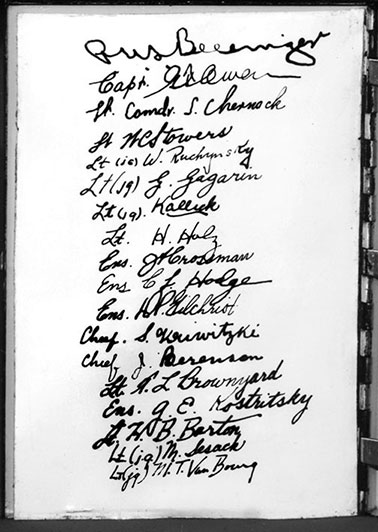 Capt.
Lt. Comdr. S. Chernock
Lt WC Stowers
Lt (jg) W. Ruchynsky
Lt(jg) G. Gagarin
Lt(jg). Kallick
Lt. H. Holz
Ens. Crossman
Ens C J. Hodge
Ens. Gilchrist
Chief. S. Kriwitzki
Chief J. Berenson
Lt. A L Brownyard
Ens. G. E. Kostritsky
Lt. H. B. Barton
Lt (jg) M. Sesack
Lt(jg) M. T. Van Bourg